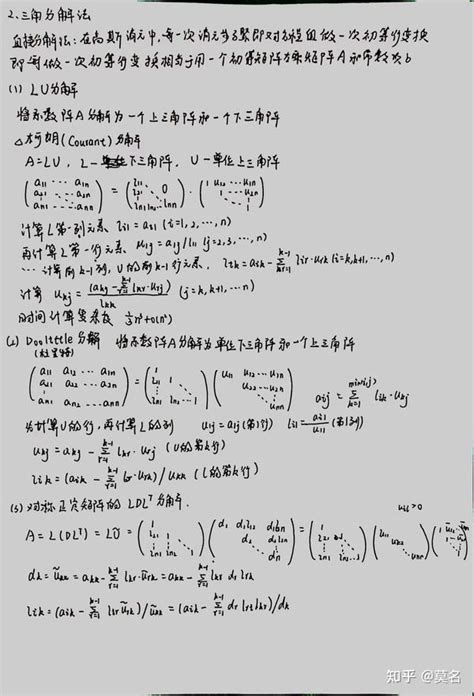 2.三角分解法
直接分解法：在高斯消元中，每一次消元步骤即对方程组做一次初等行变换
即每做一次初等行变换相当于用一个初等矩阵左乘矩阵A和常数项b
(1) LU分解
将系数阵A分解为一个上三角阵和一个下三角阵
(Courant)分解
A=LU, L-下三角阵, U-单位上三角阵
(a₁₁ … a₁ₙ; a₂₁ … a₂ₙ; aₙ₁ … aₙₙ) = (l₁₁; l₂₁ … 0; lₙ₁ lₙ₂ … lₙₙ) · (1 u₁₂ … u₁ₙ; 1 … u₂ₙ; 1)
计算L第一列元素 lᵢ₁=aᵢ₁ (i=1,2,…,n)
再计算L第一行元素 u₁ⱼ=a₁ⱼ/l₁₁ (j=2,3,…,n)
…计算前k-1列, U的前k-1行元素, lᵢₖ=aᵢₖ-∑ᵣ₌₁ᵏ⁻¹ lᵢᵣ·uᵣₖ (i=k,k+1,…,n)
计算 uₖⱼ=(aₖⱼ-∑ᵣ₌₁ᵏ⁻¹ lₖᵣ·uᵣⱼ)/lₖₖ (j=k,k+1,…n)
时间计算复杂度 ⅓n³+o(n²)
(2) Doolittle分解 将系数阵A分解为单位下三角阵和一个上三角阵
(杜里特)
(a₁₁ a₁₂ … a₁ₙ; a₂₁ a₂₂ … a₂ₙ; aₙ₁ aₙ₂ … aₙₙ) = (1; l₂₁ 1; lₙ₁ lₙ₂ … 1) (u₁₁ u₁₂ … u₁ₙ; u₂₂ … u₂ₙ; uₙₙ) aᵢⱼ=∑ₖ₌₁^min(i,j) lᵢₖ·uₖⱼ
先计算U的行,再计算L的列 u₁ⱼ=a₁ⱼ(第1行) lᵢ₁=aᵢ₁/u₁₁ (第1列)
uₖⱼ=aₖⱼ-∑ᵣ₌₁ᵏ⁻¹ lₖᵣ·uᵣⱼ (U的第k行)
lᵢₖ=(aᵢₖ-∑ᵣ₌₁ᵏ⁻¹ lᵢᵣ·uᵣₖ)/uₖₖ (L的第k行)
(3) 对称正定矩阵的LDLᵀ分解.
uᵢᵢ>0
A=L(DLᵀ)=LŨ=
dₖ=ũₖₖ=aₖₖ-∑ᵣ₌₁ᵏ⁻¹ lₖᵣ·ũᵣₖ=aₖₖ-∑ᵣ₌₁ᵏ⁻¹ lₖᵣ dᵣ lₖᵣ
lᵢₖ=(aᵢₖ-∑ᵣ₌₁ᵏ⁻¹ lᵢᵣũᵣₖ)/ũₖₖ=(aᵢₖ-∑ᵣ₌₁ᵏ⁻¹ dᵣlᵢᵣlₖᵣ)/dₖ
知乎 @莫名